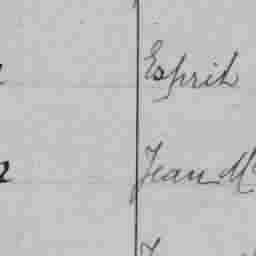 Esprit
2 Jean M